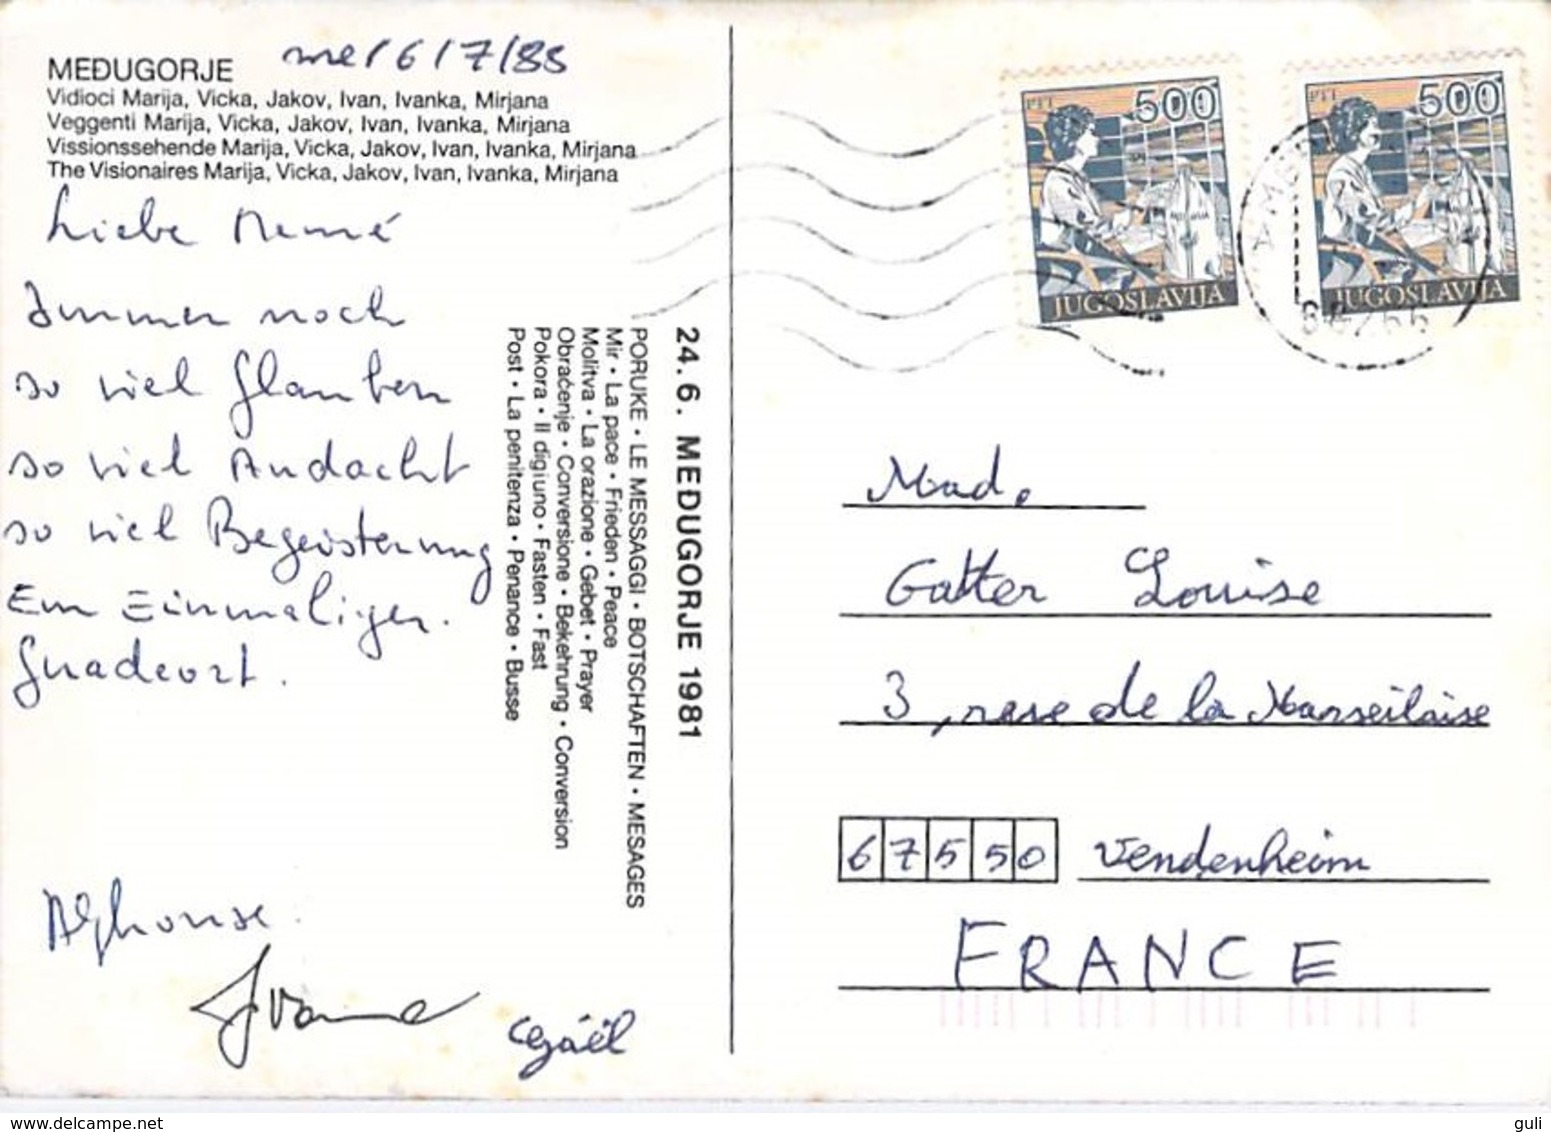 MEĐUGORJE me / 6 / 7 / 88
Vidioci Marija, Vicka, Jakov, Ivan, Ivanka, Mirjana
Veggenti Marija, Vicka, Jakov, Ivan, Ivanka, Mirjana
Vissionssehende Marija, Vicka, Jakov, Ivan, Ivanka, Mirjana
The Visionaires Marija, Vicka, Jakov, Ivan, Ivanka, Mirjana
Liebe Memé
Immer noch
so viel Glauben
so viel Andacht
so viel Begeisterung
Ein Einmaliger.
Gnadeort.
Alphonse.
Yvonne
Gaël
24. 6. MEĐUGORJE 1981
PORUKE • LE MESSAGGI • BOTSCHAFTEN • MESAGES
Mir • La pace • Frieden • Peace
Molitva • La orazione • Gebet • Prayer
Obraćenje • Conversione • Bekehrung • Conversion
Pokora • Il digiuno • Fasten • Fast
Post • La penitenza • Penance • Busse
PTT 500
JUGOSLAVIJA
PTT 500
JUGOSLAVIJA
Mad.
Gatter Louise
3, rue de la Marseilaise
67550 Vendenheim
FRANCE
www.delcampe.net
guli